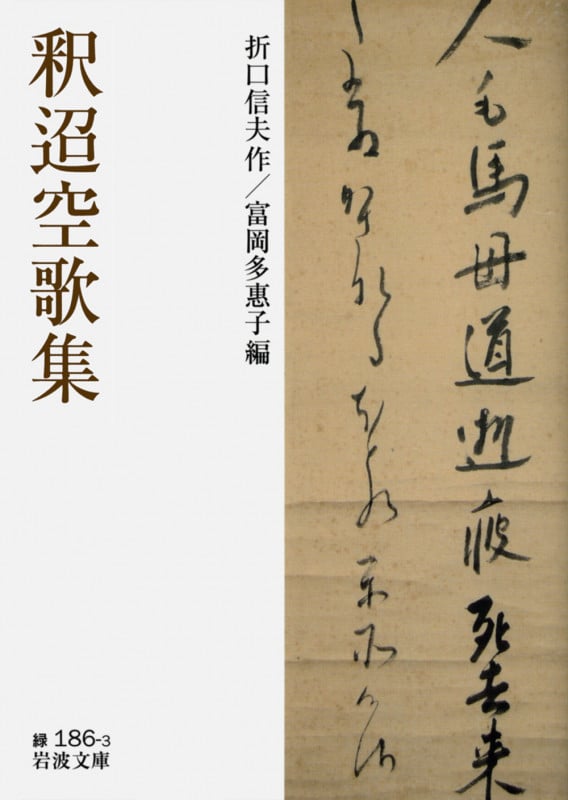 釈迢空歌集
折口信夫作／富岡多惠子編
人毛馬母道逝疲死去来
緑 186-3
岩波文庫